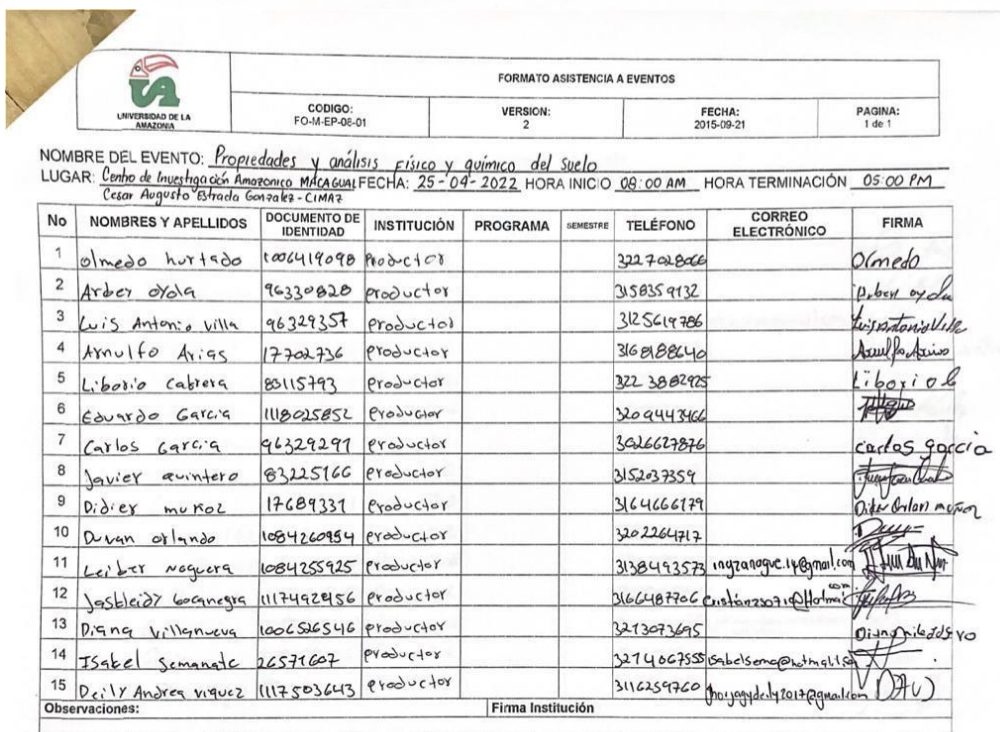 UNIVERSIDAD DE LA AMAZONIA
FORMATO ASISTENCIA A EVENTOS
CODIGO: FO-M-EP-08-01 VERSION: 2 FECHA: 2015-09-21 PAGINA: 1 de 1
NOMBRE DEL EVENTO: Propiedades y análisis Físico y químico del suelo
LUGAR: Centro de Investigación Amazonico MACAGUAL FECHA: 25-04-2022 HORA INICIO 08:00 AM HORA TERMINACIÓN 05:00 PM
Cesar Augusto Estrada Gonzalez - CIMAZ
No NOMBRES Y APELLIDOS DOCUMENTO DE IDENTIDAD INSTITUCIÓN PROGRAMA SEMESTRE TELÉFONO CORREO ELECTRÓNICO FIRMA
1 olmedo hurtado 1006419098 Productor 3227028066 Olmedo
2 Arbey oyola 96330828 Productor 3158359132
3 Luis Antonio villa 96329357 Productor 3125619786 Luis Antonio Villa
4 Arnulfo Arias 17702736 Productor 3168188640 Arnulfo Arias
5 Liborio Cabrera 83115793 Productor 322 3882925 Liborio C
6 Eduardo Garcia 1118025852 Productor 3209443466
7 Carlos Garcia 96329291 Productor 3026627876 carlos garcia
8 Javier quintero 83225166 Productor 3152037359
9 Didier muñoz 17689331 Productor 3164666179
10 Duvan orlando 1084260954 Productor 3202264717
11 Leiber Noguera 1084255925 Productor 3138493573
12 Jasbleidy bocanegra 1117492456 Productor 3166487706
13 Diana villanueva 1006526546 Productor 3213073695
14 Isabel Semanate 26571607 Productor 3214067555
15 Deily Andrea viquez 1117503643 Productor 3116259760
Observaciones: Firma Institución